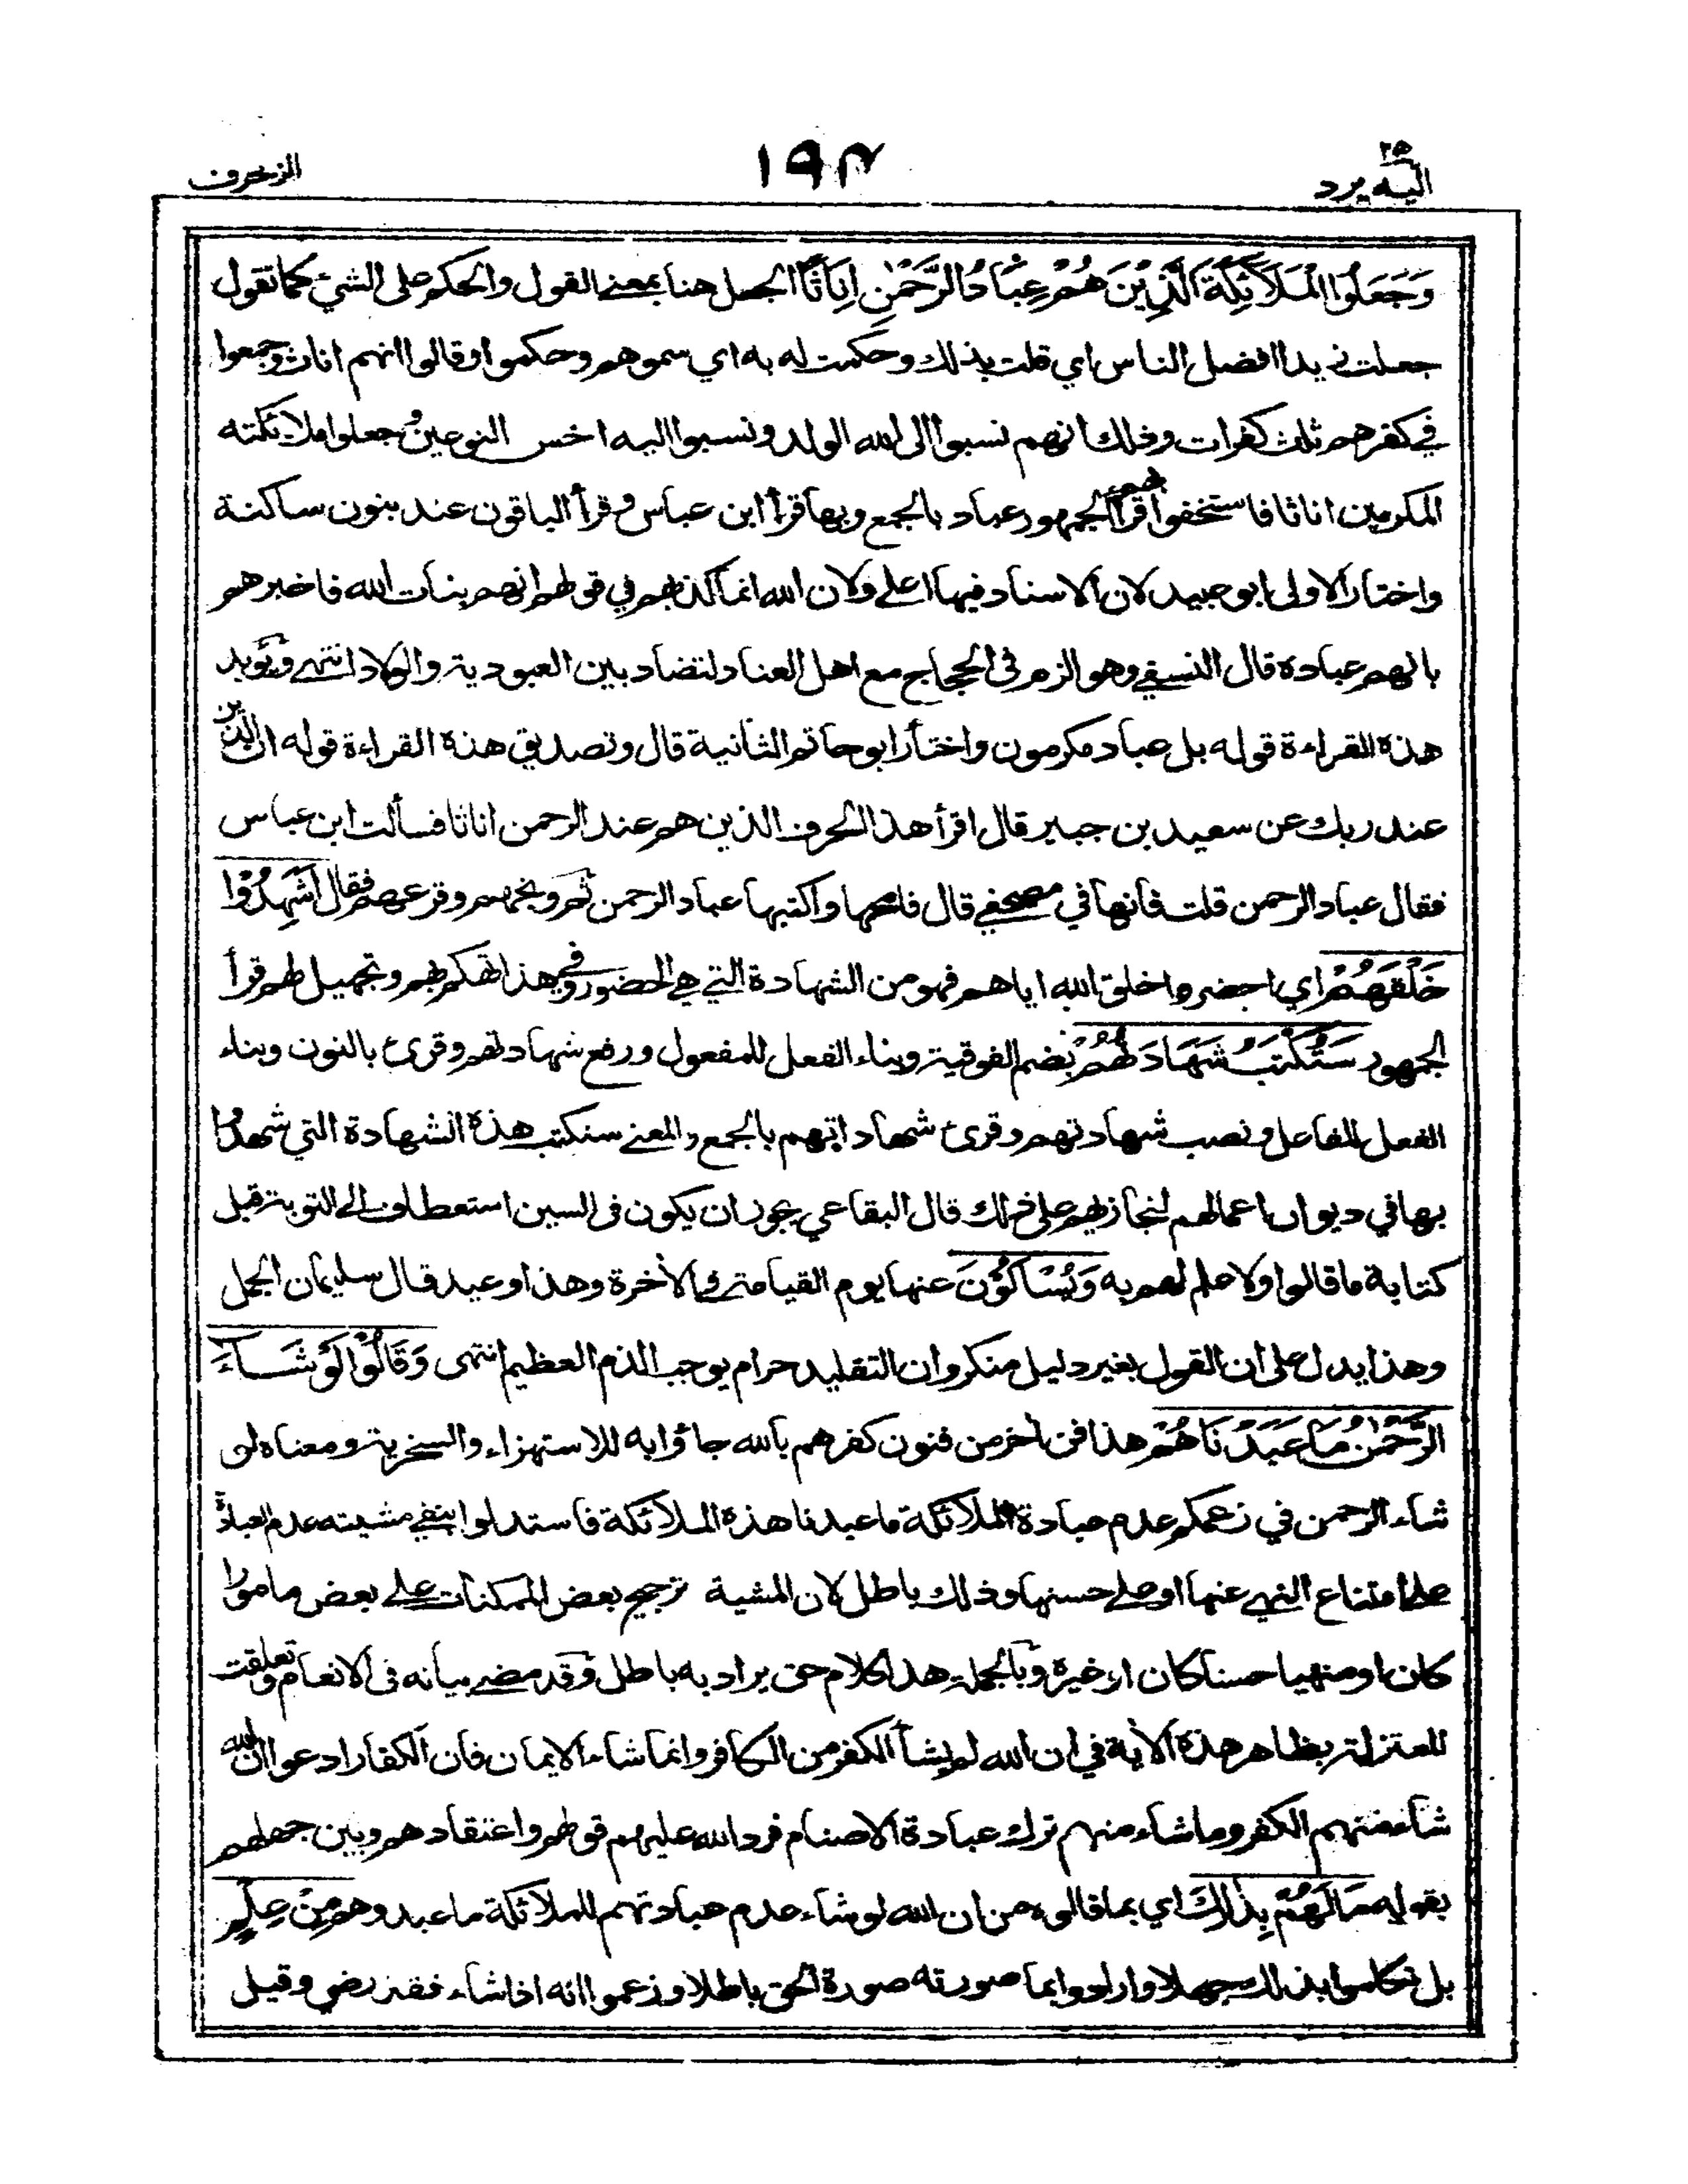 ٢٥
اليه يرد
١٩٣
الزخرف
وَجَعَلُوا الْمَلَائِكَةَ الَّذِيْنَ هُمْ عِبَادُ الرَّحْمٰنِ اِنَاثًا الجعل هنا بمعنى القول والحكم على الشئ كما تقول
جعلت زيدا افضل الناس اي قلت بذلك وحكمت له به اي سموهم وحكموا وقالوا انهم اناث وجمعوا
في كفرهم ثلث كفرات وذلك انهم نسبوا الى الله الولد ونسبوا اليه اخس النوعين وجعلوا ملائكته
المكرمين اناثا فاستخفوا بهم قرأ الجمهور عباد بالجمع وبها قرأ ابن عباس وقرأ الباقون عند بنون ساكنة
واختار الاولى ابو عبيد لان الاسناد فيها اعلى ولان الله انما كذبهم في قولهم انهم بنات الله فاخبرهم
بانهم عباده قال النسفي وهو الزم في الحجاج مع اهل العناد لتضاد بين العبودية والولاد انتهى ويؤيد
هذه القراءة قوله بل عباد مكرمون واختار ابو حاتم الثانية قال وتصديق هذه القراءة قوله ان الذين
عند ربك عن سعيد بن جبير قال اقرأ هذا الحرف الذين هم عند الرحمن اناثا فسألت ابن عباس
فقال عباد الرحمن قلت فانها في مصحفي قال فامحها واكتبها عباد الرحمن ثم وبخهم وقرعهم فقال اَشَهِدُوْا
خَلْقَهُمْ اي احضروا خلق الله اياهم فهو من الشهادة التي هي الحضور وفي هذا تهكم بهم وتجهيل لهم قرأ
الجمهور سَتُكْتَبُ شَهَادَتُهُمْ بضم الفوقية وبناء الفعل للمفعول ورفع شهادتهم وقرئ بالنون وبناء
الفعل للفاعل ونصب شهادتهم وقرئ شهاداتهم بالجمع والمعنى سنكتب هذه الشهادة التي شهدوا
بها في ديوان اعمالهم لنجازيهم على ذلك قال البقاعي يجوز ان يكون في السين استعطاف الى التوبة قبل
كتابة ما قالوا ولا علم لهم به وَيُسْاَلُوْنَ عنها يوم القيامة في الآخرة وهذا وعيد قال سليمان الجمل
وهذا يدل على ان القول بغير دليل منكر وان التقليد حرام يوجب الذم العظيم انتهى وَقَالُوْا لَوْ شَآءَ
الرَّحْمٰنُ مَا عَبَدْنَاهُمْ هذا فن آخر من فنون كفرهم بالله جاؤا به للاستهزاء والسخرية ومعناه لو
شاء الرحمن في زعمكم عدم عبادة الملائكة ما عبدنا هذه الملائكة فاستدلوا بنفي مشيته عدم العبادة
على امتناع النهي عنها او على حسنها وذلك باطل لان المشية ترجيح بعض الممكنات على بعض مامورا
كان او منهيا حسنا كان او غيره وبالجملة هذا كلام حق يراد به باطل وقد مضى بيانه في الانعام وتعلقت
المعتزلة بظاهر هذه الآية في ان الله لم يشأ الكفر من الكافر وانما شاء الايمان فان الكفار ادعوا ان الله
شاء منهم الكفر وما شاء منهم ترك عبادة الاصنام فرد الله عليهم قولهم واعتقادهم وبين جهلهم
بقوله مَا لَهُمْ بِذٰلِكَ اي بما قالوه من ان الله لو شاء عدم عبادتهم للملائكة ما عبدوهم مِنْ عِلْمٍ
بل تكلموا بذلك جهلا وارادوا بما صورته صورة الحق باطلا وزعموا انه اذا شاء فقد رضي وقيل